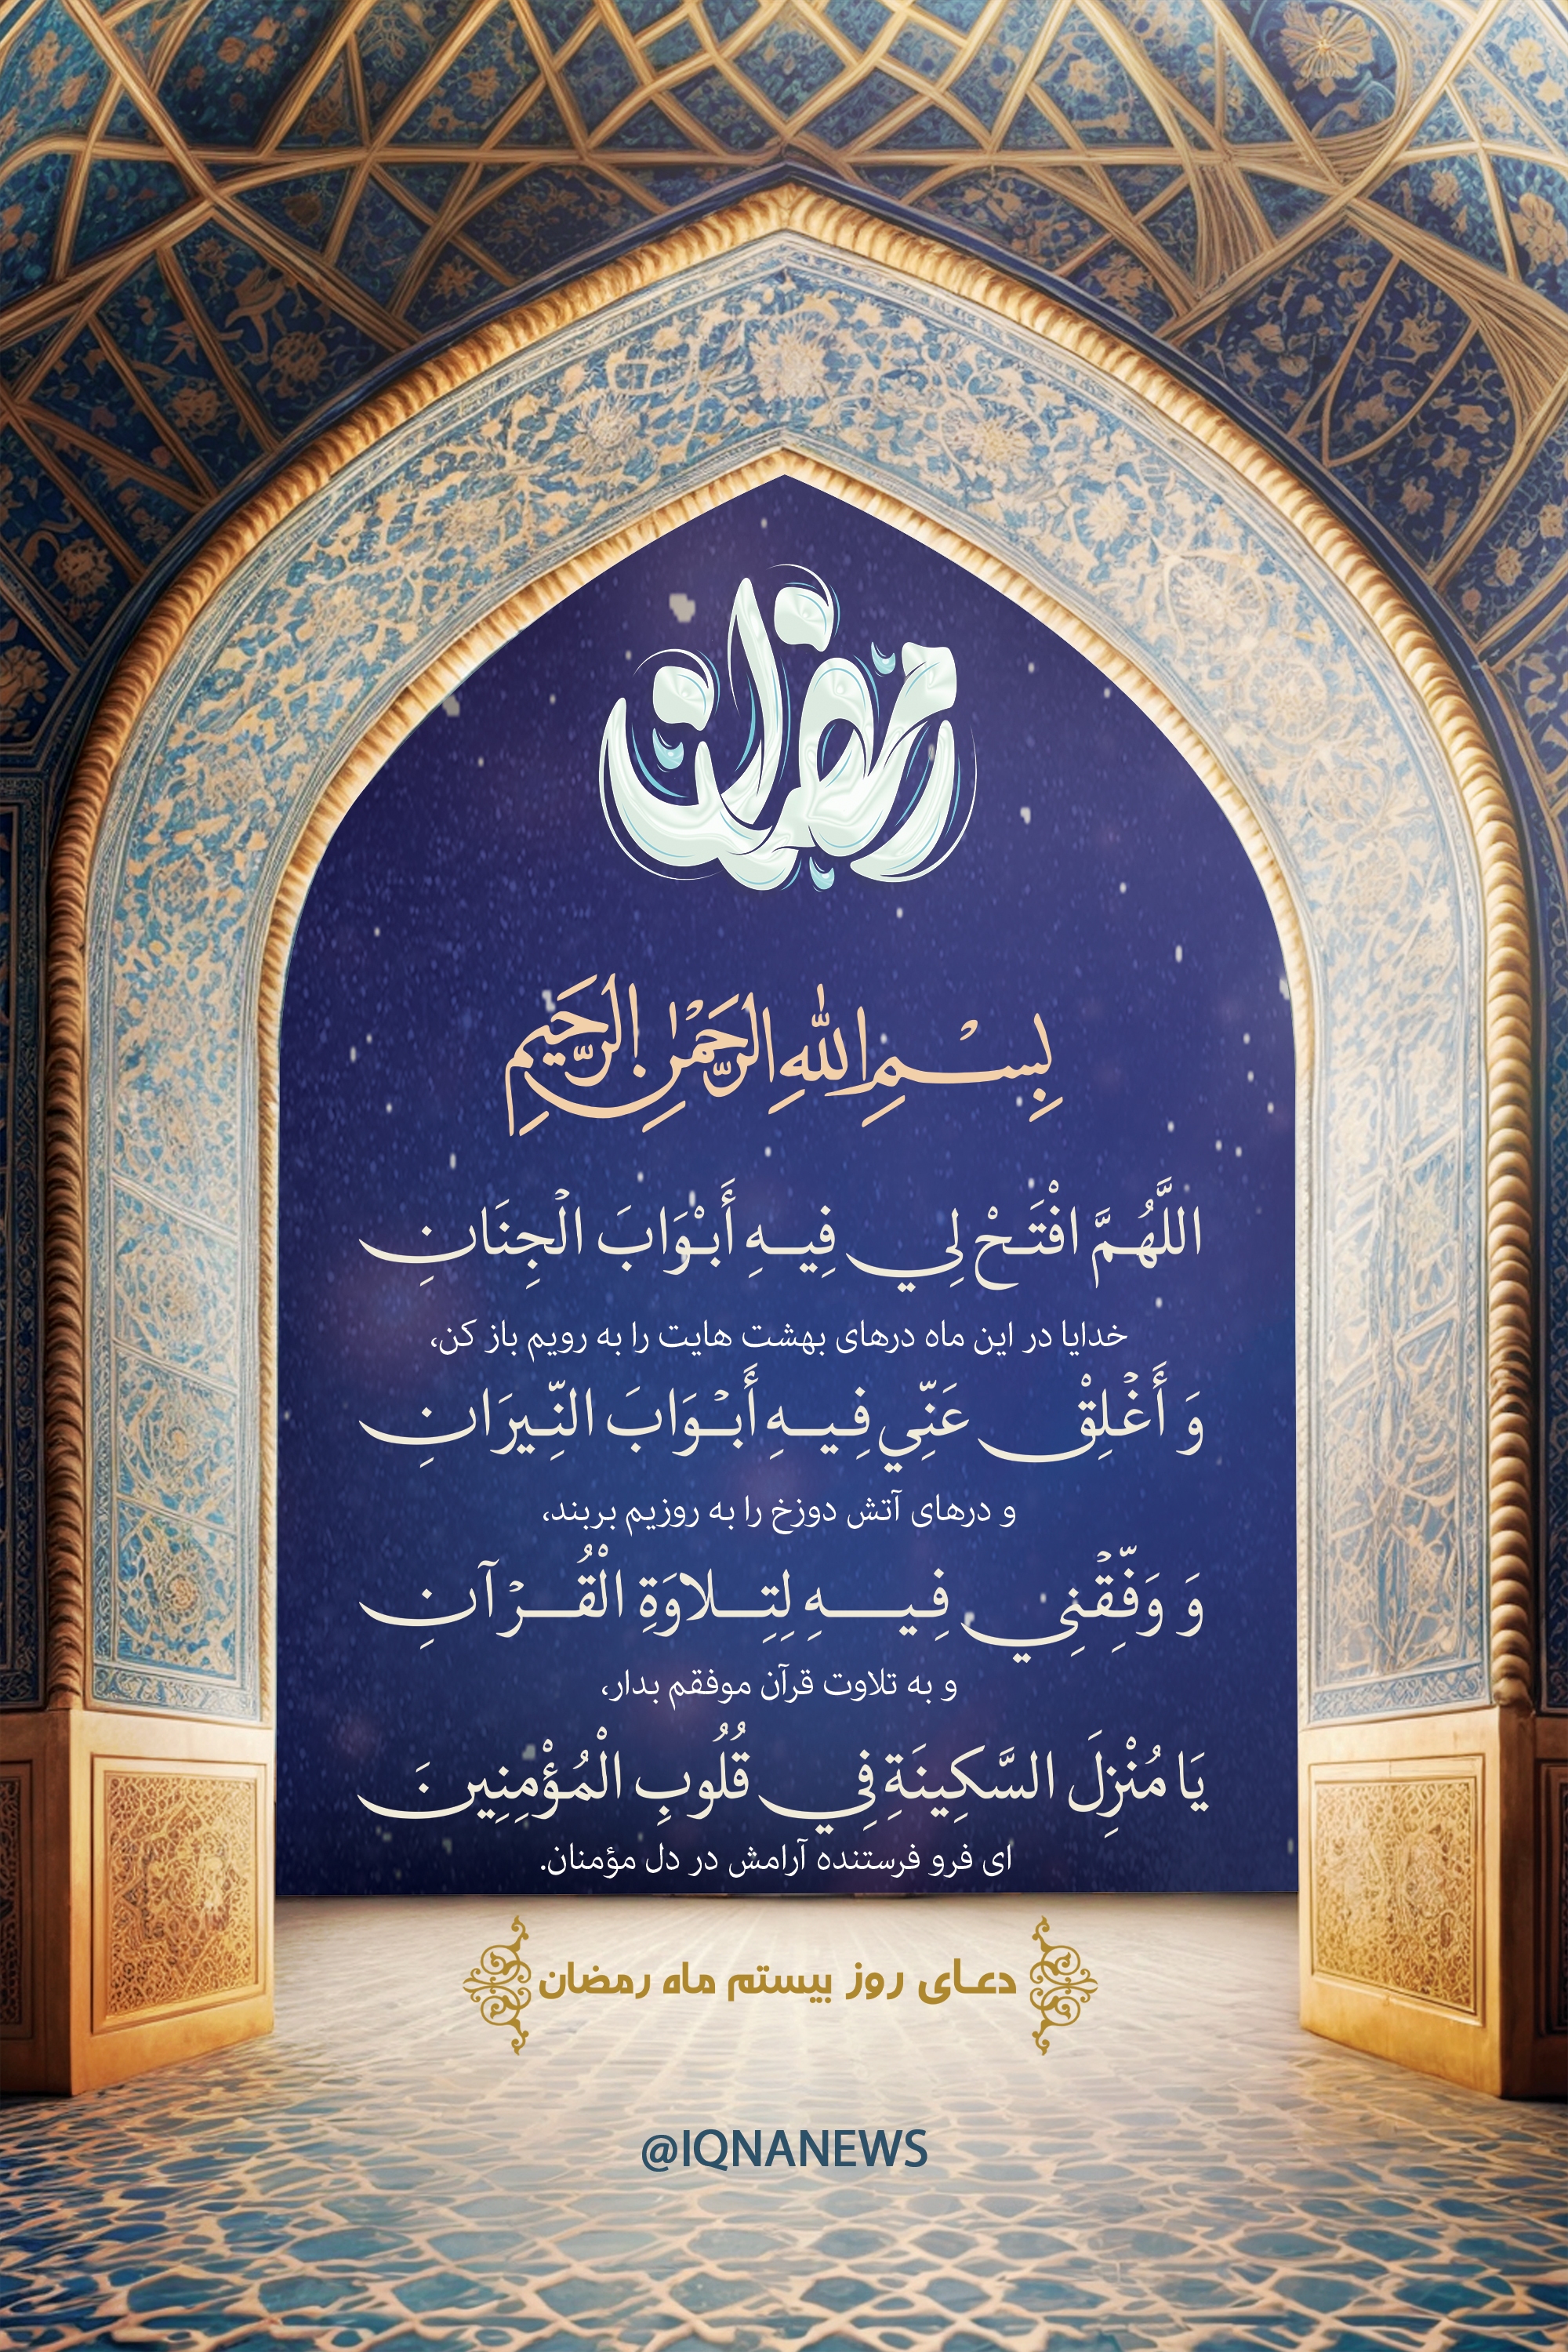 رمضان
بِسْمِ اللهِ الرَّحْمٰنِ الرَّحِيمِ
اللَّهُمَّ افْتَحْ لِي فِيهِ أَبْوَابَ الْجِنَانِ
خدایا در این ماه درهای بهشت هایت را به رویم باز کن،
وَ أَغْلِقْ عَنِّي فِيهِ أَبْوَابَ النِّيرَانِ
و درهای آتش دوزخ را به روزیم بربند،
وَ وَفِّقْنِي فِيهِ لِتِلاوَةِ الْقُرْآنِ
و به تلاوت قرآن موفقم بدار،
يَا مُنْزِلَ السَّكِينَةِ فِي قُلُوبِ الْمُؤْمِنِينَ
ای فرو فرستنده آرامش در دل مؤمنان.
دعای روز بیستم ماه رمضان
@IQNANEWS